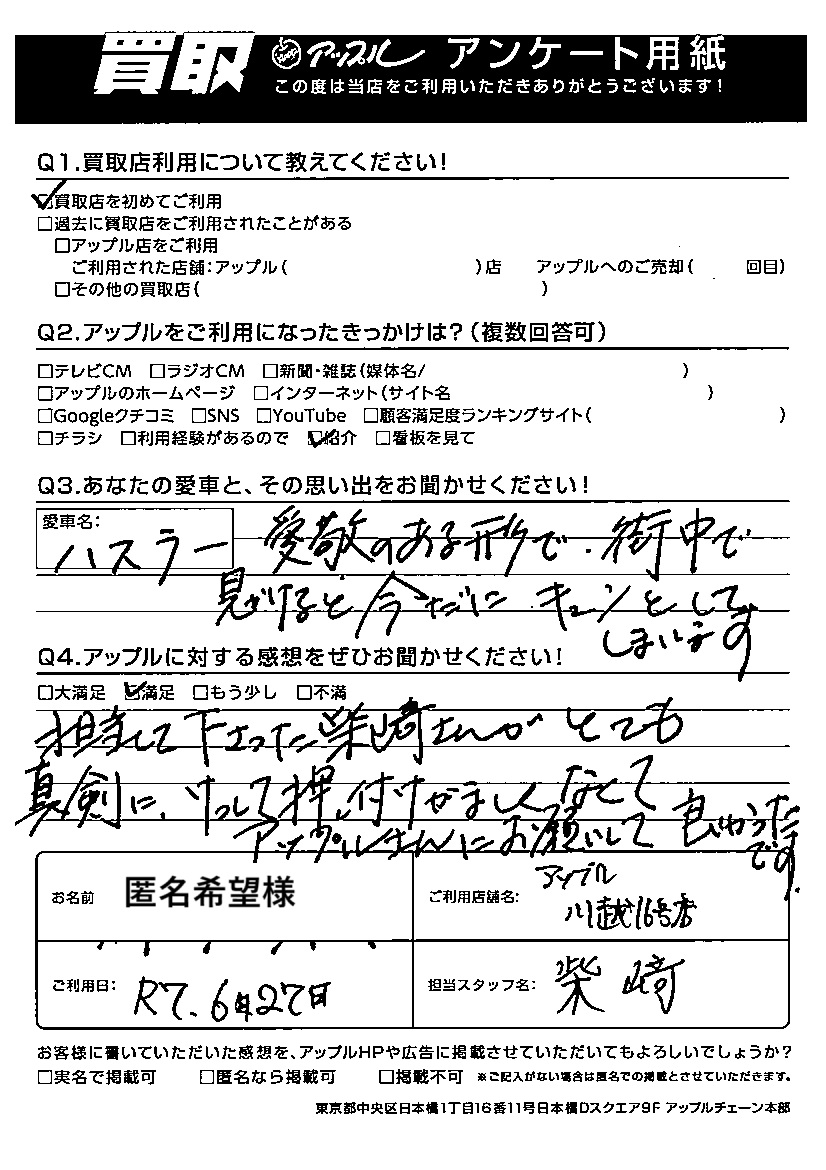 買取 アップル アンケート用紙
この度は当店をご利用いただきありがとうございます！
Q1.買取店利用について教えてください！
☑買取店を初めてご利用
□過去に買取店をご利用されたことがある
□アップル店をご利用
ご利用された店舗：アップル（ ）店 アップルへのご売却（ 回目）
□その他の買取店（ ）
Q2.アップルをご利用になったきっかけは？（複数回答可）
□テレビCM □ラジオCM □新聞・雑誌（媒体名/ ）
□アップルのホームページ □インターネット（サイト名 ）
□Googleクチコミ □SNS □YouTube □顧客満足度ランキングサイト（ ）
□チラシ □利用経験があるので ☑紹介 □看板を見て
Q3.あなたの愛車と、その思い出をお聞かせください！
愛車名：
ハスラー 愛敬のある形で、街中で
見かけると今だにキュンとして
しまいます
Q4.アップルに対する感想をぜひお聞かせください！
□大満足 ☑満足 □もう少し □不満
担当して下さった柴崎さんがとても
真剣に、けっして押し付けがましくなくて
アップルさんにお願いして良かった
です。
お名前 匿名希望様 ご利用店舗名： アップル
川越16号店
ご利用日： R7.6月27日 担当スタッフ名： 柴崎
お客様に書いていただいた感想を、アップルHPや広告に掲載させていただいてもよろしいでしょうか？
□実名で掲載可 □匿名なら掲載可 □掲載不可 ※ご記入がない場合は匿名での掲載とさせていただきます。
東京都中央区日本橋1丁目16番11号日本橋Dスクエア9F アップルチェーン本部